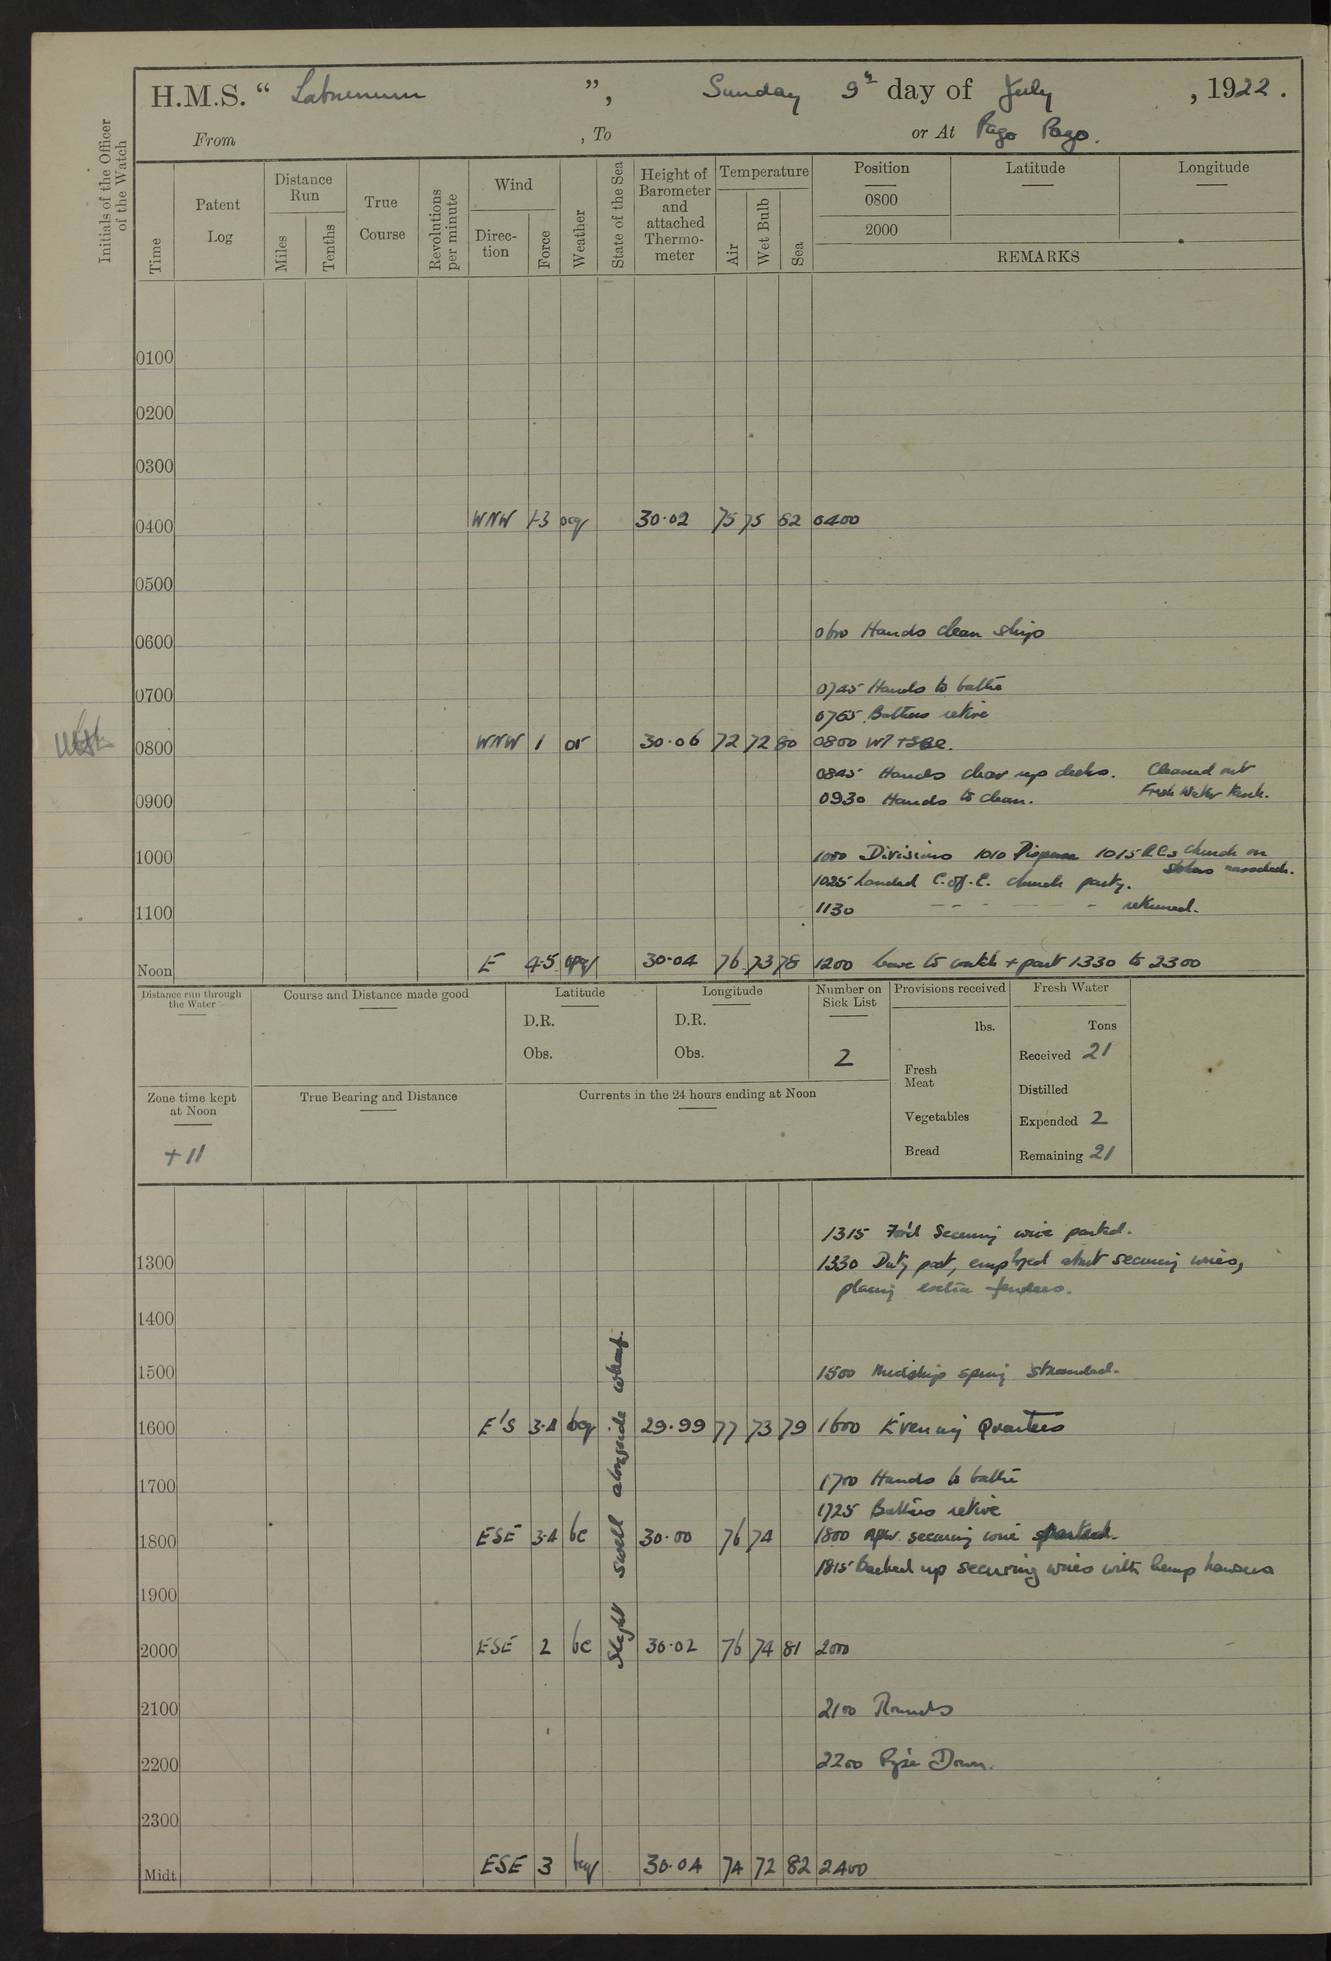 H.M.S. “ Laburnum ”, Sunday 9th day of July , 1922 .
From , To or At Pago Pago.
Initials of the Officer of the Watch
Time
Patent Log
Distance Run
Miles
Tenths
True Course
Revolutions per minute
Wind
Direc-tion
Force
Weather
State of the Sea
Height of Barometer and attached Thermo-meter
Temperature
Air
Wet Bulb
Sea
Position Latitude Longitude
0800
2000
REMARKS
0100
0200
0300
0400 WNW 1-3 ocq 30·02 75 75 82 0400
0500
0600 0600 Hands clean ship
0700 0745 Hands to bathe
0755 Bathers retire
0800 WNW 1 or 30·06 72 72 80 0800
0845 Hands clear up decks. Cleaned out
0900 0930 Hands to clean. Fresh Water tank.
1000 1000 Divisions 1010 1015 R.Cs church on
1025 Landed C. of. E. church party.
1100 1130 – – – – – – returned.
Noon E 4-5 opq 30·04 76 73 78 1200 leave to watch + part 1330 to 2300
Distance run through the Water
Course and Distance made good
Latitude
D.R.
Obs.
Longitude
D.R.
Obs.
Number on Sick List
2
Provisions received
lbs.
Fresh Meat
Vegetables
Bread
Fresh Water
Tons
Received 21
Distilled
Expended 2
Remaining 21
Zone time kept at Noon
+ 11
True Bearing and Distance
Currents in the 24 hours ending at Noon
1315 For'd Securing wire parted.
1300 1330 Duty part, employed about securing wires,
placing extra fenders.
1400
1500 1500 Midship spring stranded.
1600 E'S 3·4 bcq 29·99 77 73 79 1600 Evening Quarters
Slight swell alongside wharf.
1700 1700 Hands to bathe
1725 Bathers retire
1800 ESE 3·4 bc 30·00 76 74 1800 securing wire parted.
1815 backed up securing wires with hemp hawsers
1900
2000 ESE 2 bc 30·02 76 74 81 2000
2100 2100 Rounds
2200 2200 Pipe Down.
2300
Midt ESE 3 bcq 30·04 74 72 82 2400